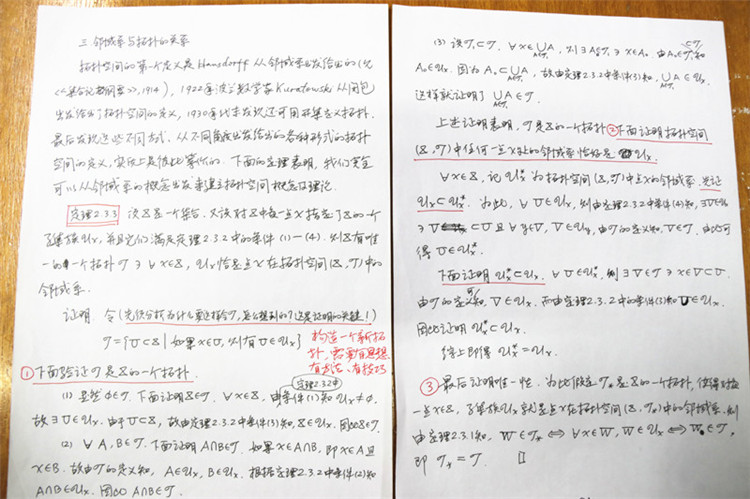 三 邻域系与拓扑的关系
拓扑空间的第一个定义是Hausdorff 从邻域系出发给出的(见
<<集合论基础概要>>,1914), 1922年波兰数学家Kuratowski 从闭包
出发给出了拓扑空间的定义, 1930年代末发现还可用开集定义拓扑.
最后发现这些不同方式、从不同角度出发给出的各种形式的拓扑
空间的定义, 实际上是彼此等价的. 下面的定理表明, 我们完全
可以从邻域系的概念出发来建立拓扑空间概念及理论.
定理2.3.3 设X是一个集合. 又设对X中每一点x指定了X的一个
子集族𝒰x, 并且它们满足定理2.3.2中的条件(1)—(4). 则X有唯
一的一个拓扑𝒯 ∋ ∀x∈X, 𝒰x恰是点x在拓扑空间(X,𝒯)中的
邻域系.
证明: 令(先须分析为什么要这样令𝒯,怎么想到的?这是证明的关键!)
𝒯={U⊂X | 如果x∈U, 则有U∈𝒰x}
构造一个新拓
扑, 需要有思想
有方法、有技巧
① 下面验证𝒯是X的一个拓扑.
定理2.3.2中
(1) 显然∅∈𝒯. 下面证明X∈𝒯. ∀x∈X, 由条件(1)知𝒰x≠∅.
故∃U∈𝒰x. 由于U⊂X, 故由定理2.3.2中条件(3)知, X∈𝒰x. 因此X∈𝒯.
(2) ∀A,B∈𝒯. 下面证明A∩B∈𝒯. 如果x∈A∩B, 即x∈A且
x∈B. 故由𝒯的定义知, A∈𝒰x, B∈𝒰x. 根据定理2.3.2中条件(2)知
A∩B∈𝒰x. 因此A∩B∈𝒯.
(3) 设𝒯₁⊂𝒯. ∀x∈∪A, 则∃A₀∈𝒯₁∋x∈A₀. 由A₀∈𝒯₁⊂𝒯知
A∈𝒯₁
A₀∈𝒰x. 因为A₀⊂∪A, 故由定理2.3.2中条件(3)知, ∪A∈𝒰x.
A∈𝒯₁ A∈𝒯₁
这样就证明了∪A∈𝒯.
A∈𝒯₁
上述证明表明, 𝒯是X的一个拓扑 ②下面证明拓扑空间
(X,𝒯)中任何一点x处的邻域系恰好是𝒰x.
∀x∈X, 记𝒰x*为拓扑空间(X,𝒯)中点x的邻域系. 先证
𝒰x⊂𝒰x*. 为此, ∀U∈𝒰x, 则由定理2.3.2中条件(4)知, ∃V∈𝒰x
∋V⊂U且∀y∈V, V∈𝒰y, 由𝒯的定义知, V∈𝒯. 由此可
得U∈𝒰x*.
下面证明𝒰x*⊂𝒰x. ∀U∈𝒰x*, 则∃V∈𝒯∋x∈V⊂U.
由𝒯的定义可知, V∈𝒰x. 再由定理2.3.2中的条件(3)知U∈𝒰x.
因此证明𝒰x*⊂𝒰x.
综上即得𝒰x*=𝒰x.
③ 最后证明唯一性. 为此假设𝒯*是X的一个拓扑, 使得对每
一点x∈X, 子集族𝒰x就是点x在拓扑空间(X,𝒯*)中的邻域系. 则
由定理2.3.1知, W∈𝒯* ⟺ ∀x∈W, W∈𝒰x ⟺ W∈𝒯,
即𝒯*=𝒯. □